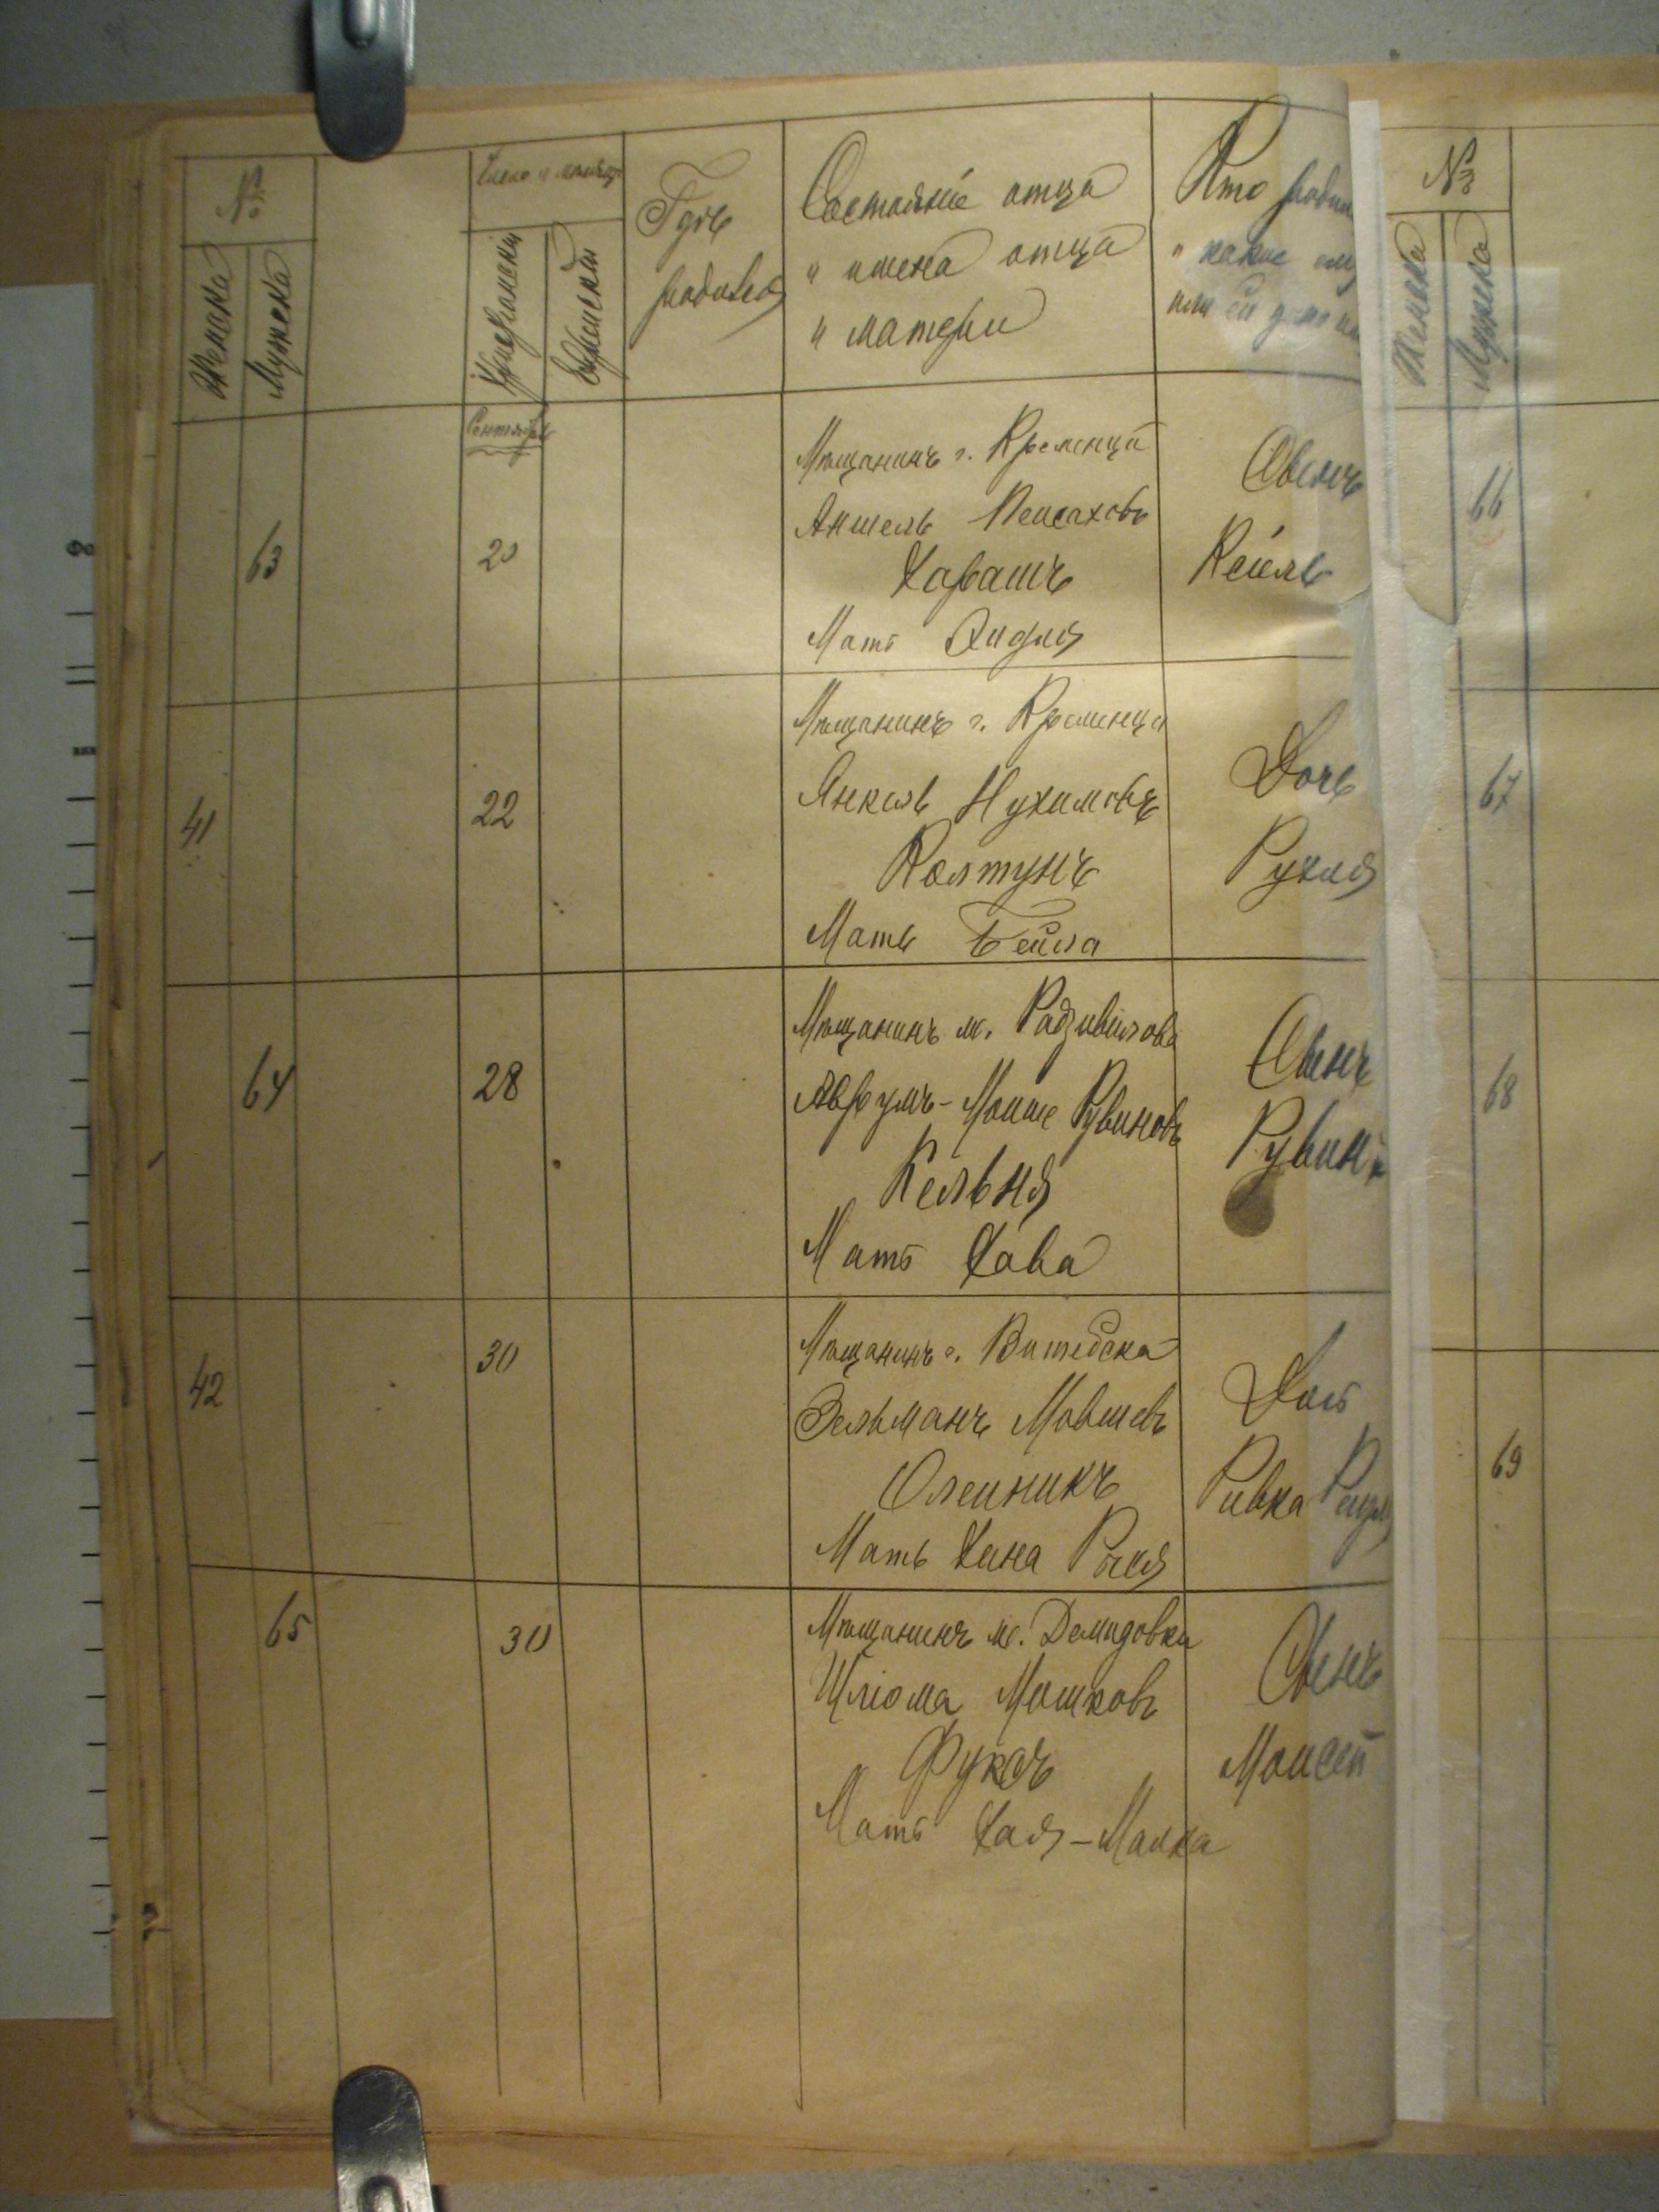 №
Женска
Мужеска
Число и мѣсяцъ
Христіански
Еврейски
Гдѣ
родился
Состояніе отца
и имена отца
и матери
Кто родил
и какие ему
или ей дано им
№
Женска
Мужеска
Сентябрь
63
20
Мѣщанинъ г. Кременца
Аншель Пейсаховъ
Харашъ
Мать Эидля
Сынъ
Кейль
66
41
22
Мѣщанинъ г. Кременца
Янкель Нухимовъ
Колтунъ
Мать Бейла
Дочь
Рухля
67
64
28
Мѣщанинъ м. Радзивилова
Аврумъ-Мойше Рувиновъ
Кельня
Мать Хава
Сынъ
Рувинъ
68
42
30
Мѣщанинъ г. Витебска
Зельманъ Мовшевъ
Олейникъ
Мать Хина Рохля
Дочь
Ривка Рейзя
69
65
30
Мѣщанинъ м. Демидовки
Шліома Мошковъ
Фуксъ
Мать Хая-Малка
Сынъ
Моисей